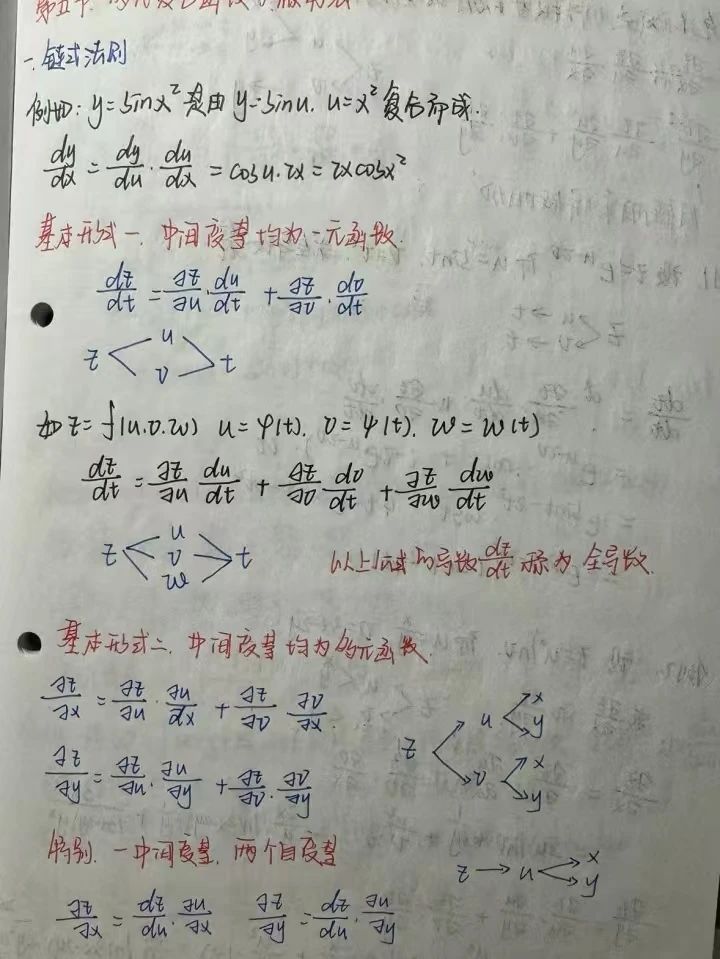 一.链式法则
例如: y=sinx² 是由 y=sinu. u=x² 复合而成.
dy/dx = dy/du · du/dx = cosu·2x = 2xcosx²
基本形式一. 中间变量均为一元函数.
dz/dt = ∂z/∂u · du/dt + ∂z/∂v · dv/dt
z u v t
如 z=f(u.v.w) u=φ(t). v=ψ(t). w=w(t)
dz/dt = ∂z/∂u du/dt + ∂z/∂v dv/dt + ∂z/∂w dw/dt
z u v w t
以上公式的导数 dz/dt 称为 全导数.
基本形式二. 中间变量均为多元函数.
∂z/∂x = ∂z/∂u · ∂u/dx + ∂z/∂v ∂v/∂x.
∂z/∂y = ∂z/∂u · ∂u/∂y + ∂z/∂v · ∂v/∂y
z u x y v x y
特别. 一中间变量. 两个自变量
z → u x y
∂z/∂x = dz/du · ∂u/∂x ∂z/∂y = dz/du · ∂u/∂y